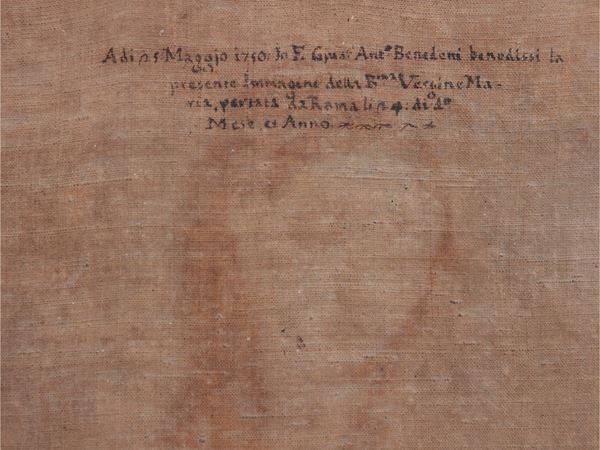 Adi 25 Maggio 1750. Io F. Gius. Ant.º Benedeni benedissi la
presente Immagine della B.ma Vergine Ma-
ria, portata da Roma li 4: di d.º
Mese et Anno